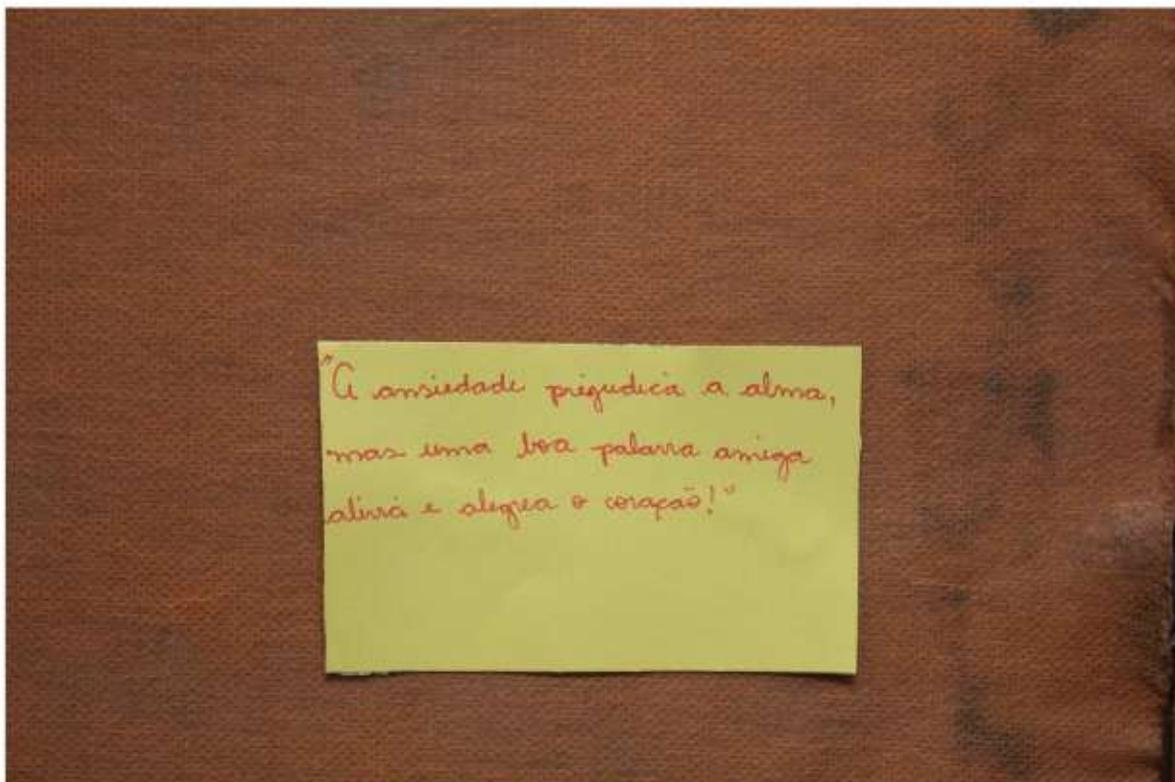 "A ansiedade prejudica a alma,
mas uma boa palavra amiga
alivia e alegra o coração!"